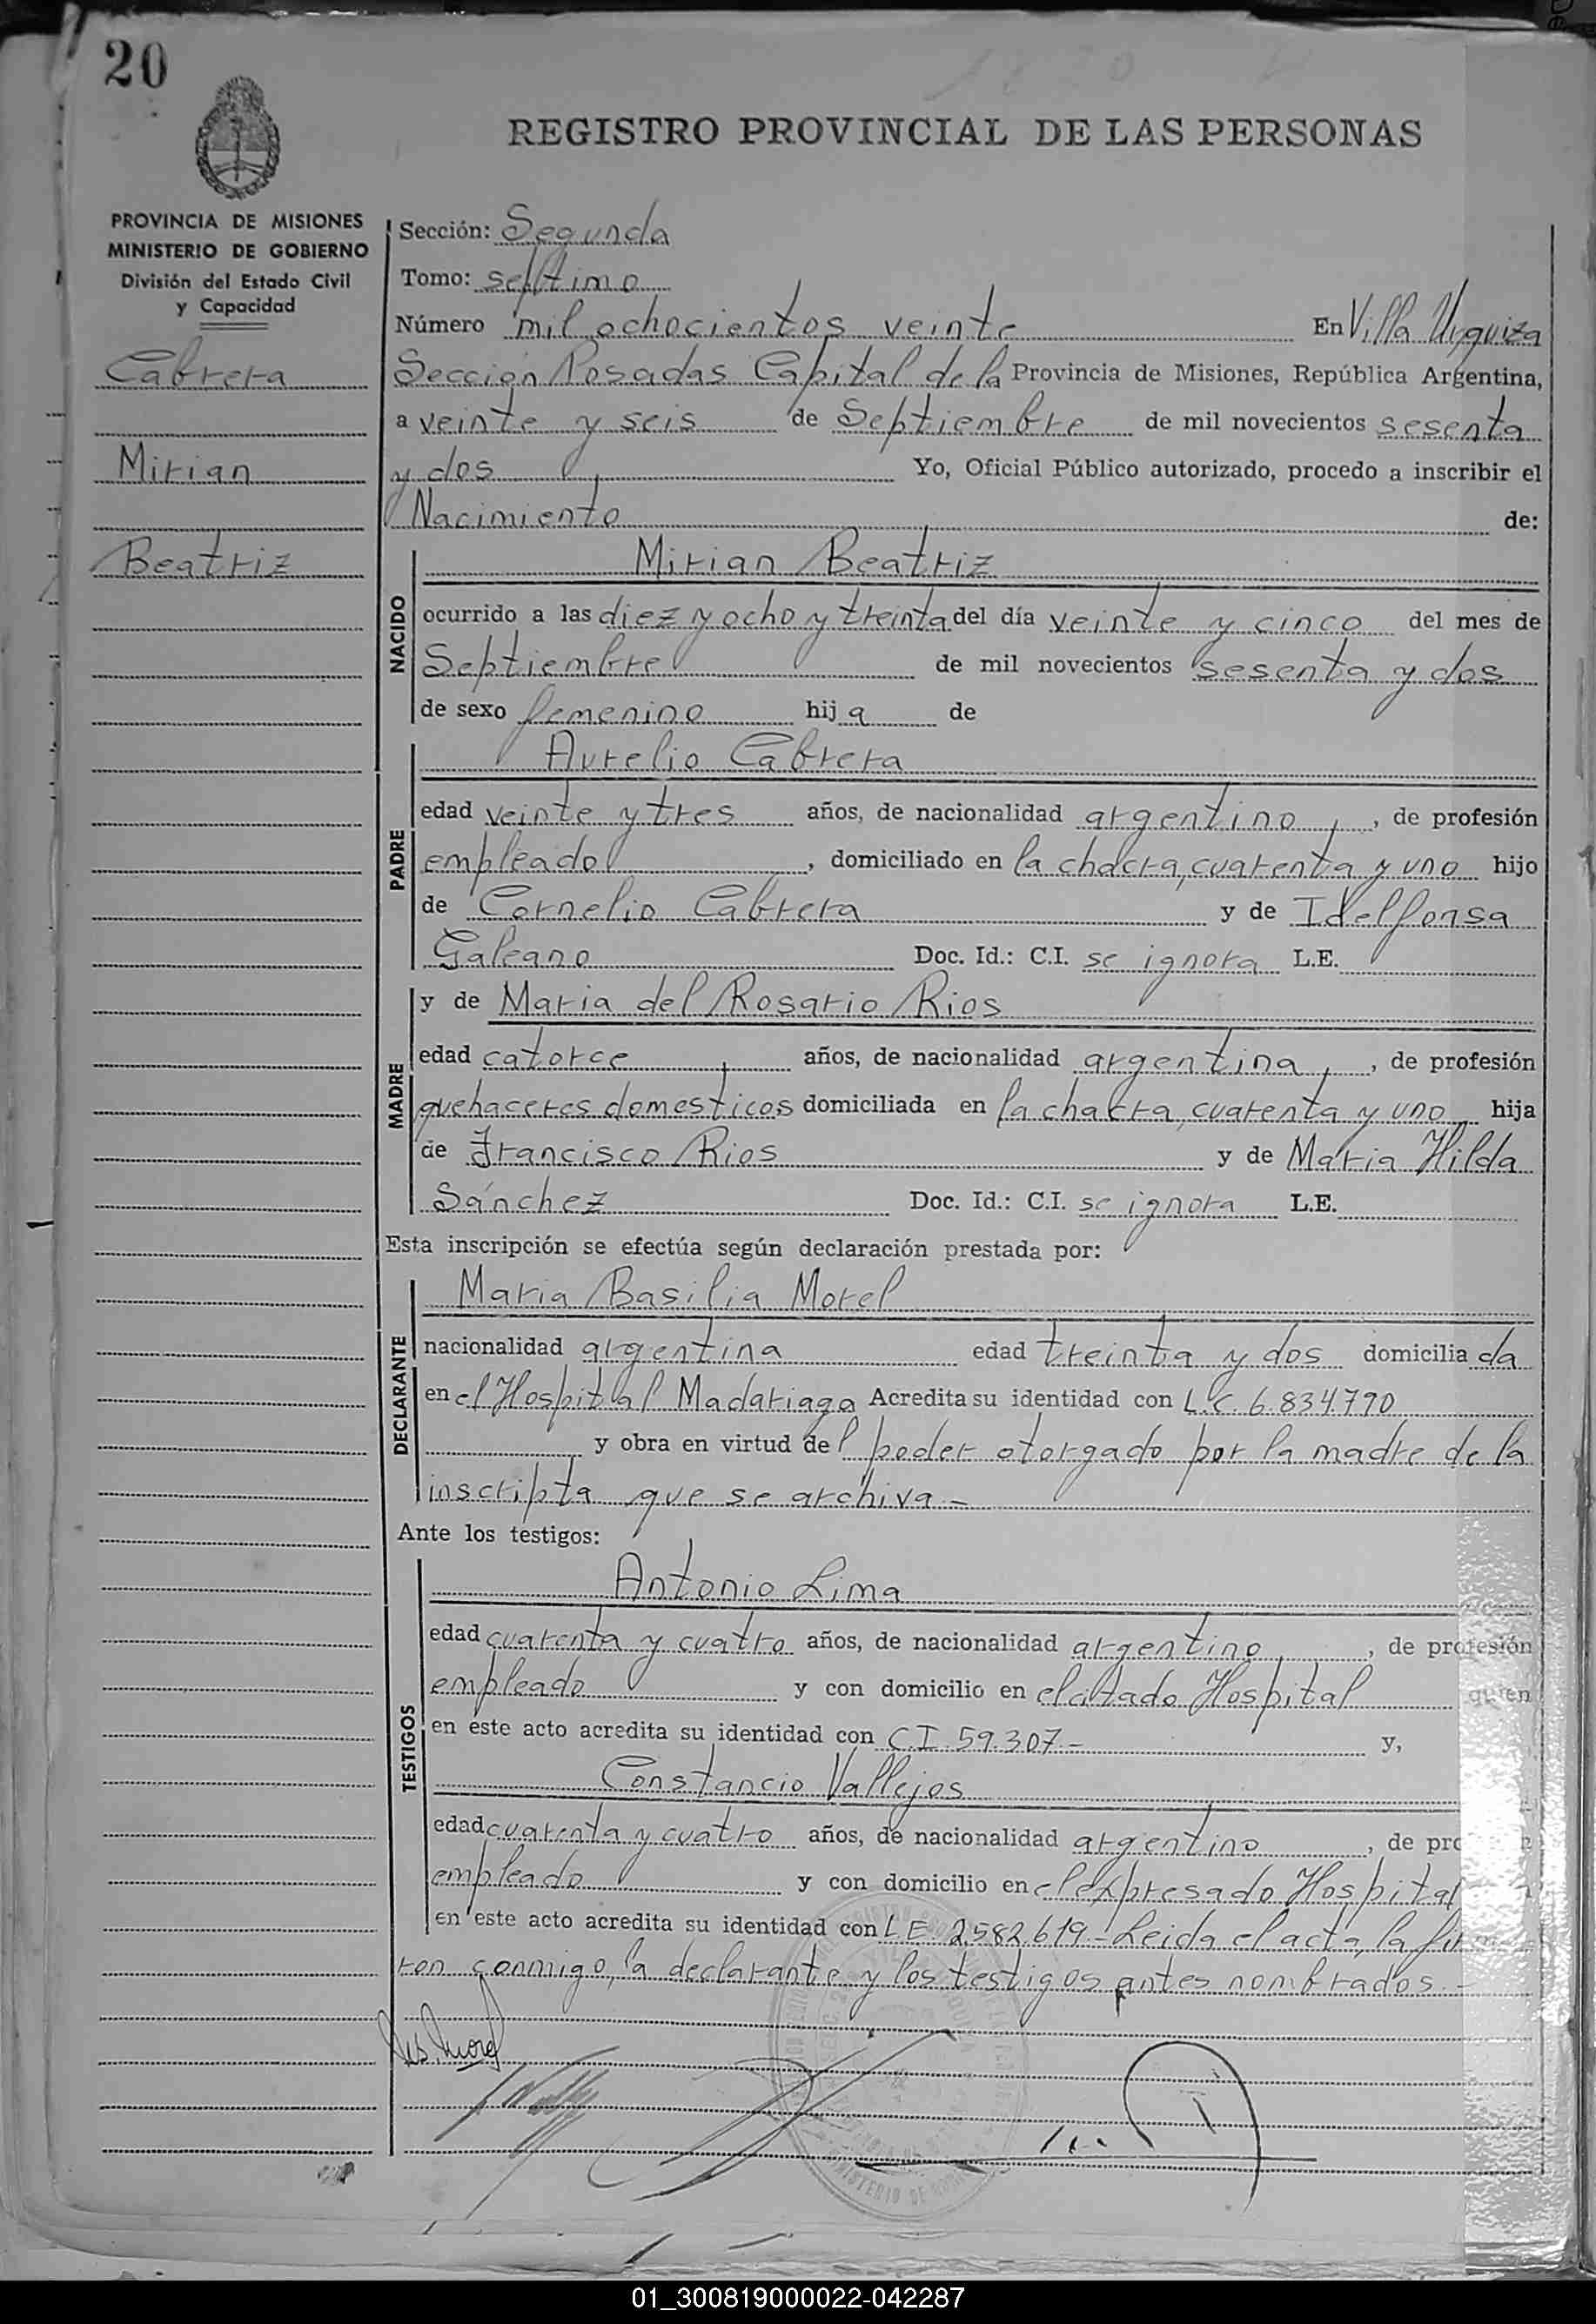 20
REGISTRO PROVINCIAL DE LAS PERSONAS
PROVINCIA DE MISIONES
MINISTERIO DE GOBIERNO
División del Estado Civil
y Capacidad
Cabrera
Mirian
Beatriz
Sección: Segunda
Tomo: septimo
Número mil ochocientos veinte En Villa Urquiza
Sección Posadas Capital de la Provincia de Misiones, República Argentina,
a veinte y seis de Septiembre de mil novecientos sesenta
y dos Yo, Oficial Público autorizado, procedo a inscribir el
Nacimiento de:
NACIDO
Mirian Beatriz
ocurrido a las diez y ocho y treinta del día veinte y cinco del mes de
Septiembre de mil novecientos sesenta y dos
de sexo femenino hija de
PADRE
Aurelio Cabrera
edad veinte y tres años, de nacionalidad argentino, de profesión
empleado, domiciliado en la chacra, cuarenta y uno hijo
de Cornelio Cabrera y de Idelfonsa
Galeano Doc. Id.: C.I. se ignora L.E.
MADRE
y de Maria del Rosario Rios
edad catorce años, de nacionalidad argentina, de profesión
quehaceres domesticos domiciliada en la chacra, cuarenta y uno hija
de Francisco Rios y de Maria Hilda
Sánchez Doc. Id.: C.I. se ignora L.E.
Esta inscripción se efectúa según declaración prestada por:
DECLARANTE
Maria Basilia Morel
nacionalidad argentina edad treinta y dos domiciliada
en el Hospital Madariaga Acredita su identidad con L.C. 6.834.790
y obra en virtud del poder otorgado por la madre de la
inscripta que se archiva.-
Ante los testigos:
TESTIGOS
Antonio Lima
edad cuarenta y cuatro años, de nacionalidad argentino, de profesión
empleado y con domicilio en el citado Hospital quien
en este acto acredita su identidad con C.I. 59.307.- y,
Constancio Vallejos
edad cuarenta y cuatro años, de nacionalidad argentino, de pro
empleado y con domicilio en el expresado Hospital
en este acto acredita su identidad con L E 2.582.619.- Leida el acta, la firma
ron conmigo, la declarante y los testigos antes nombrados.-
01_300819000022-042287